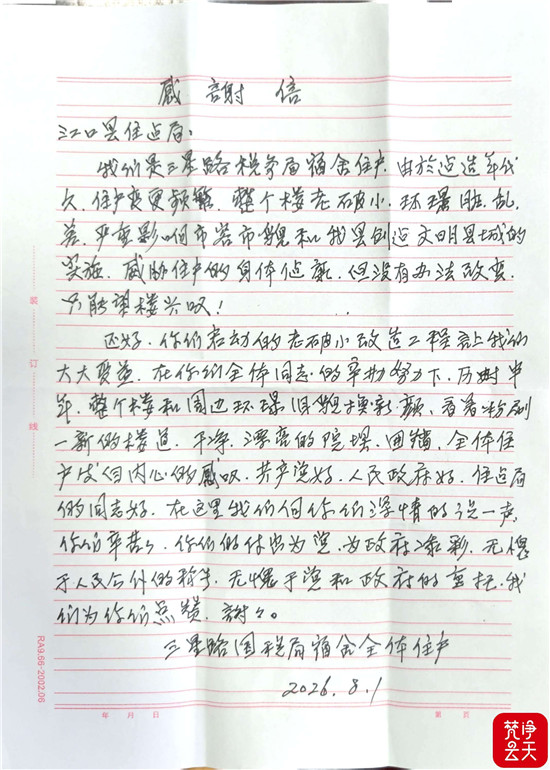 感謝信
江口县住占局:
我们是三星路税务局宿舍住户,由於建造年代
久,住户变更频繁,整个楼老破小,环璟脏乱
差,严重影响市容市貌和我县创造文明县城的
实施,威胁住户的身体健康,但没有办法改变,
只能望楼兴叹!
还好,你们启动的老破小改造工程让我们
大大受益,在你们全体同志的辛勤努力下,历时半
年,整个楼和周边环璟旧貌换新颜,看着粉刷
一新的楼道,干净、漂亮的院坝、围墙,全体住
户发自内心的感叹,共产党好,人民政府好,住占局
的同志好,在这里我们向你们深情的说一声,
你们辛苦了,你们的付出为党、为政府添彩,无愧
于人民公仆的称号,无愧于党和政府的重托,我
们为你们点赞,謝々。
三星路国税局宿舍全体住户
2026.8.1
装订线
RA9.56-2002.06
年 月 日
第 页
梵净云天